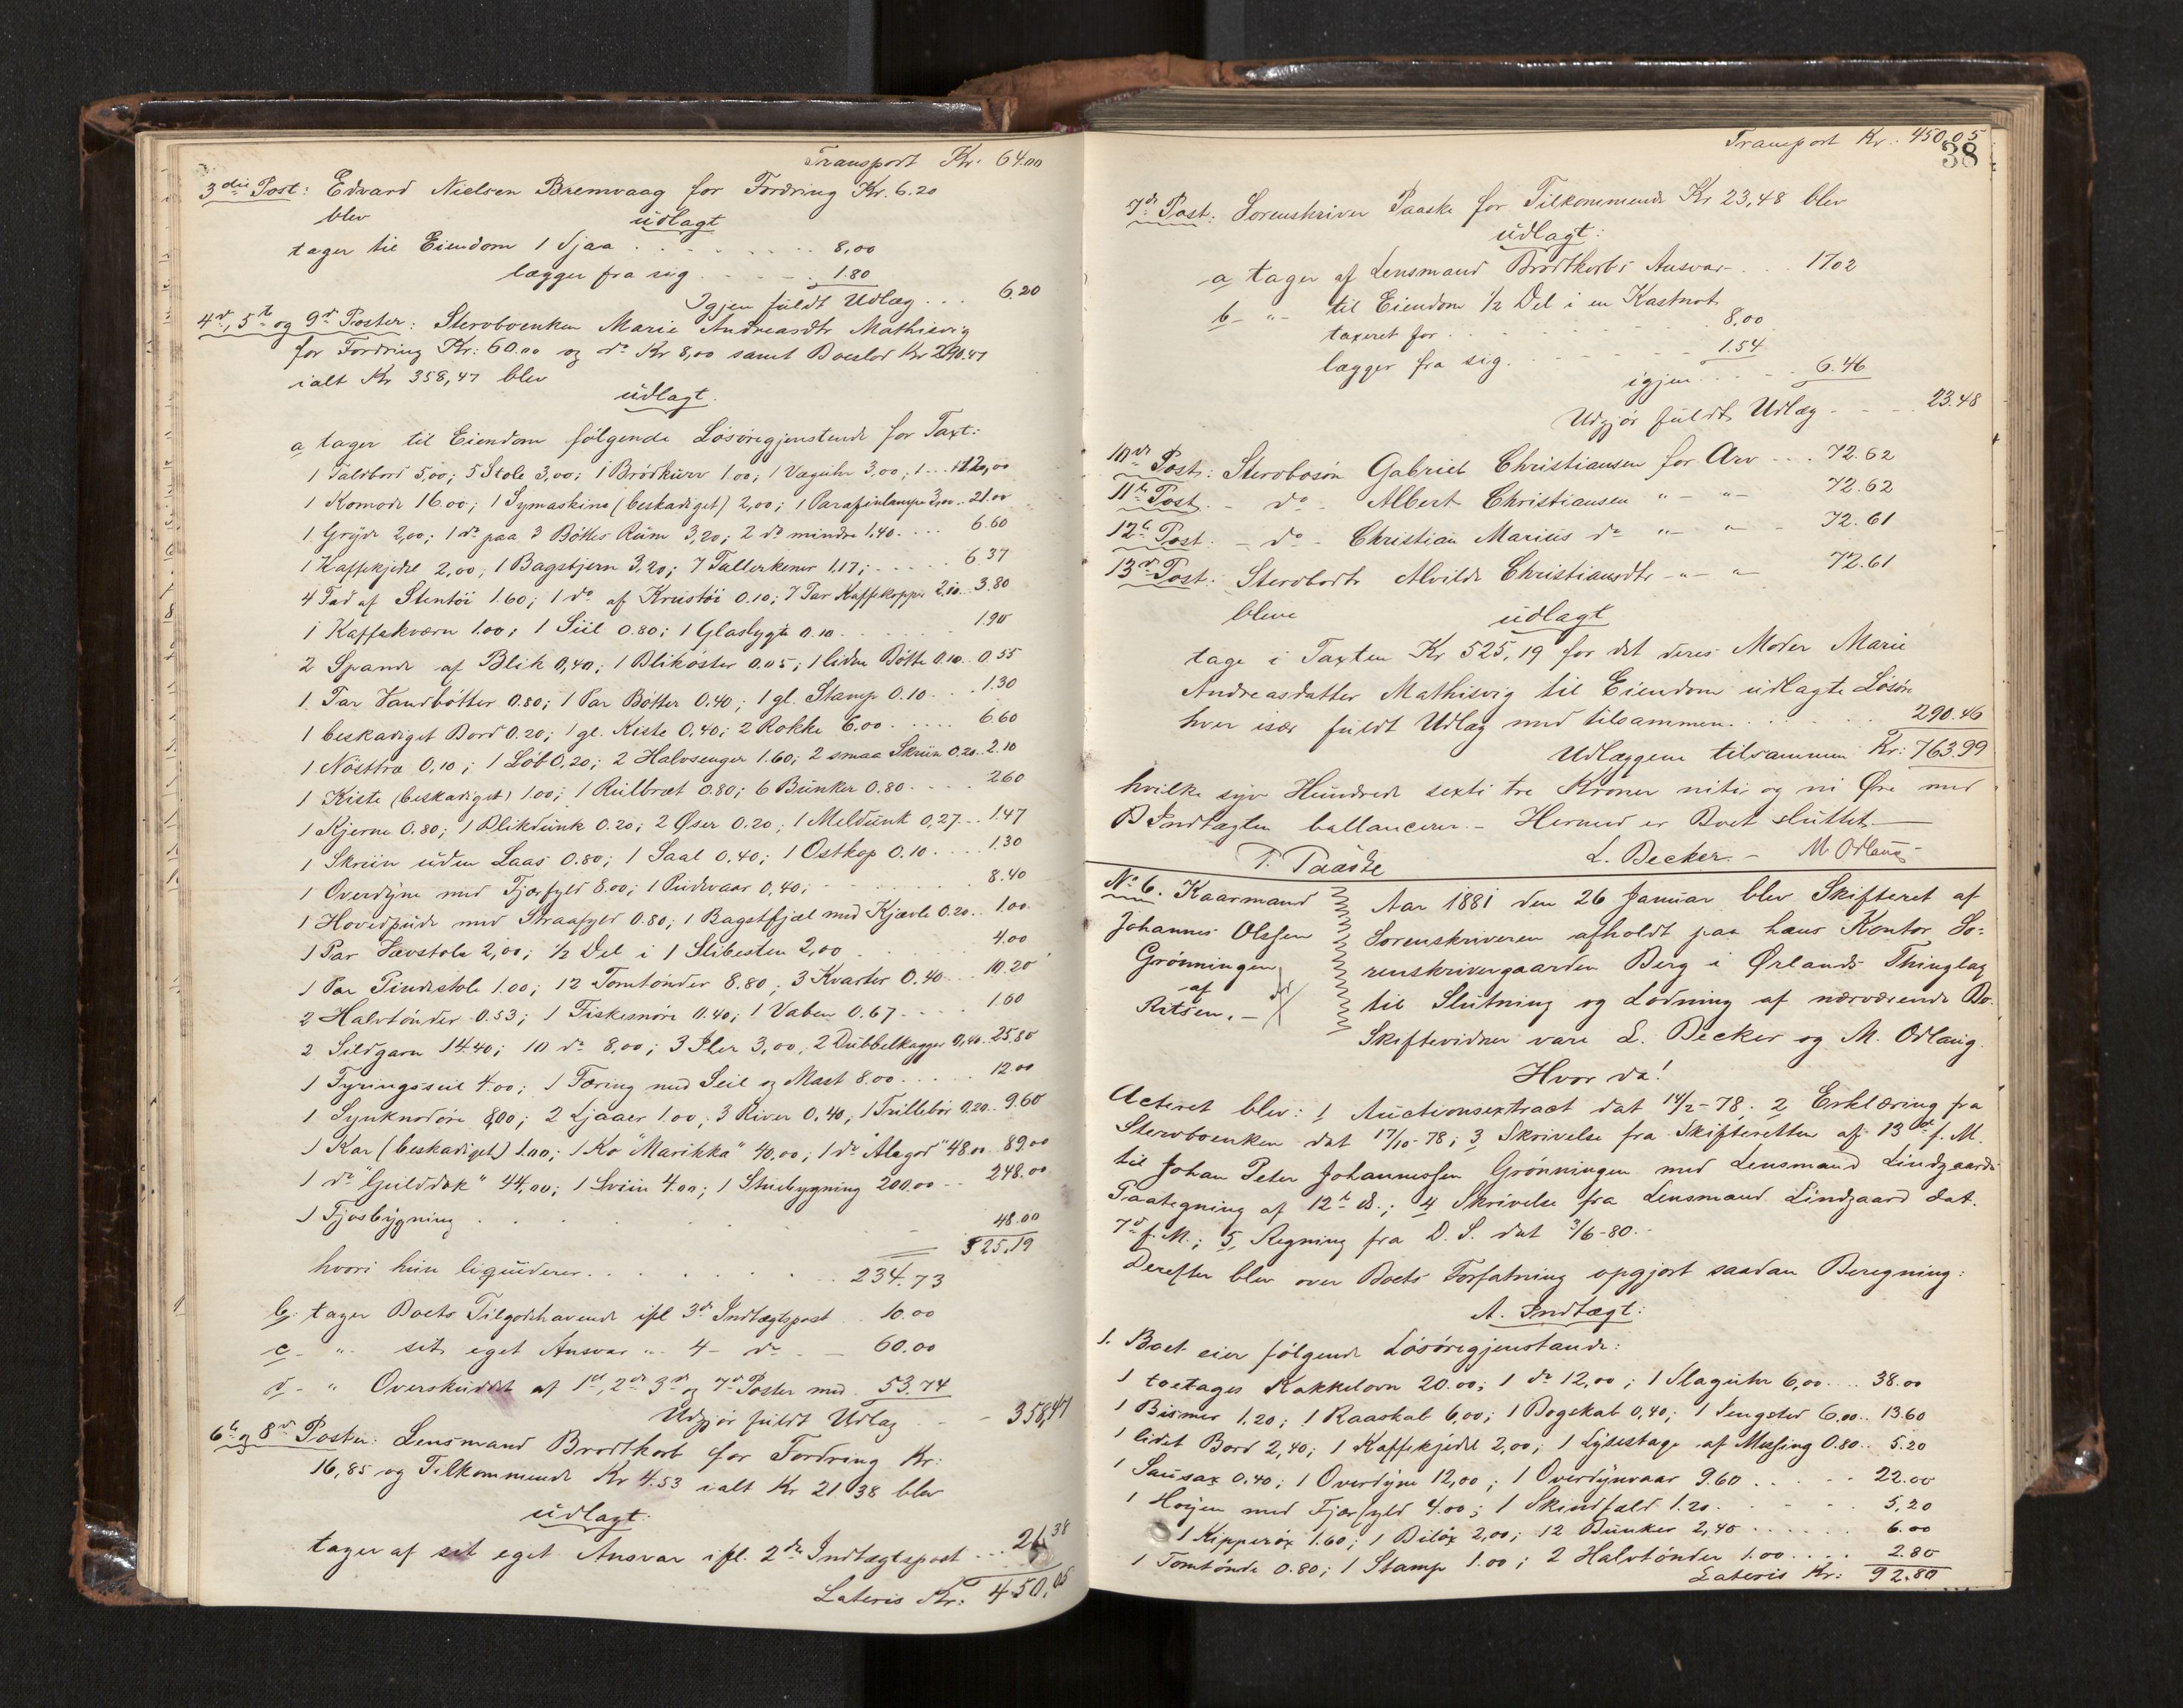 Transport Kr. 64.00
3die Post: Edvard Nielsen Bremvaag for Fordring Kr. 6.20
blev udlagt
tager til Eiendom 1 Sjaa . . . . . . 8,00
lægger fra sig . . . . . 1.80
Igjen fuldt Udlæg . . . 6.20
4de, 5te og 9de Poster: Stervboenken Marie Andreasdtr Mathisvig
for Fordring Kr: 60.00 og do Kr 8,00 samt Boeslod Kr 290.47
ialt Kr 358,47 blev
udlagt.
a tager til Eiendom følgende Løsøregjenstende for Taxt:
1 Foldbord 5,00; 5 Stole 3,00; 1 Brødkurv 1.00; 1 Væguhr 3,00; 1 . . . 12,00
1 Komode 16.00; 1 Symaskine (beskadiget) 2,00; 1 Parafinlampe 3,00 . . 21.00
1 Gryde 2,00; 1 do paa 3 Bøtters Rum 3,20; 2 do mindre 1.40 . . . . 6.60
1 Kaffekjedel 2,00; 1 Bagstjern 3,20; 7 Tallerkener 1.17; . . . . . 6.37
4 Fad af Stentøi 1.60; 1 do af Krustøi 0.10; 7 Par Kaffekopper 2.10 . . 3.80
1 Kaffekværn 1.00; 1 Siil 0.80; 1 Glaslygte 0.10 . . . . . . . 1.90
2 Spande af Blik 0,40; 1 Blikøster 0.05; 1 liden Bøtte 0.10 . . 0.55
1 Par Vandbøtter 0.80; 1 Par Bøtter 0.40; 1 gl. Stamp 0.10 . . . 1.30
1 beskadiget Bord 0.20; 1 gl. Kiste 0.40; 2 Rokke 6.00 . . . . . 6.60
1 Nøsttræ 0,10; 1 Løb 0,20; 2 Halvsenger 1.60; 2 smaa Skriin 0.20 . . 2.10
1 Kiste (beskadiget) 1.00; 1 Rulbræt 0.80; 6 Bunker 0.80 . . . . . 2.60
1 Kjerne 0.80; 1 Blikdunk 0.20; 2 Øser 0.20; 1 Meldunk 0,27 . . . 1.47
1 Skriin uden Laas 0.80; 1 Saal 0.40; 1 Ostkop 0.10 . . . . 1.30
1 Overdyne med Fjærfyld 8.00; 1 Pudevaar 0,40; . . . . . . 8.40
1 Hovedpude med Straafyld 0.80; 1 Bagstfjæl med Kjævle 0.20 . . 1.00
1 Par Vævstole 2,00; ½ Del i 1 Slibesten 2,00 . . . . . . 4.00
1 Par Pindestole 1.00; 12 Tomtønder 8.80; 3 Kvarter 0.40 . . . 10.20
2 Halvtønder 0.53; 1 Fiskesnøre 0.40; 1 Vaben 0.67 . . . . 1.60
2 Sildgarn 14.40; 10 do 8,00; 3 Iler 3,00; 2 Dubbelkagger 0,40 . 25.80
1 Fyringsseil 4.00; 1 Færing med Seil og Mast 8.00 . . . . . 12.00
1 Synknodøre 8,00; 2 Ljaaer 1.00; 3 River 0.40; 1 Trillebør 0.20 . . 9.60
1 Kar (beskadiget) 1.00; 1 Ko "Marikka" 40,00; 1 do "Alagod" 48.00 . . 89.00
1 do "Gulddok" 44,00; 1 Sviin 4.00; 1 Stuebygning 200.00 . . 248.00
1 Fjøsbygning . . . . . . 48.00
525,19
hvori hun liquiderer . . . . . . . 234.73
b. tager Boets Tilgodehavende ifl 3de Indtægtspost . . 10.00
c - " - sit eget Ansvar " 4 - do . . — 60.00
d - " Overskuddet af 1ste, 2de 3de og 7de Poster med . 53.74
Udgjør fuldt Udlæg - - 358,47
6te og 8de Poster: Lensmand Brodtkorb for Fordring Kr:
16,85 og Tilkommende Kr 4.53 ialt Kr 21.38 blev
udlagt:
tager af sit eget Ansvar ifl. 2de Indtægtspost . . . 21.38
Lateris Kr: 450,05
Transport Kr: 450,05
38
7de Post: Sorenskriver Paaske for Tilkommende Kr 23,48 blev
udlagt:
a tager af Lensmand Brodtkorbs Ansvar . . . 17.02
b - " - til Eiendom ½ Del i en Kastnot
taxeret for . . . . . . 8,00
lægger fra sig . . . . . . 1.54
igjen . . . . . 6.46
Udgjør fuldt Udlæg . . . . 23.48
10de Post: Stervbosøn Gabriel Christiansen for Arv . . . 72.62
11te Post. - do - Albert Christiansen " - " - 72.62
12te Post: - do - Christian Marius do " - " - 72.61
13de Post: Stervbodtr Alvilde Christiansdtr - " - " 72.61
bleve udlagt
tage i Taxten Kr 525,19 for det deres Moder Marie
Andreasdatter Mathisvig til Eiendom udlagte Løsøre
hver især fuldt Udlæg med tilsammen . . . . . . 290.46
Udlæggene tilsammen Kr: 763.99
hvilke syv Hundrede sexti tre Kroner niti og ni Øre med
Indtægten ballancerer. - Hermed er Boet sluttet. —
T. Paaske L. Becker. - M Odlaug
No 6. Kaarmand
Johannes Olesen
Grønningen
af
Ritsen. -
Aar 1881 den 26 Januar blev Skifteret af
Sorenskriveren afholdt paa hans Kontor So-
renskrivergaarden Berg i Ørlands Thinglag
til Slutning og Lodning af nærværende Bo.
Skiftevidner vare L. Becker og M. Odlaug.
Hvor da!
Acteret blev: 1 Auctionsextract dat 14/2-78; 2 Erklæring fra
Stervboenken dat 17/10-78; 3 Skrivelse fra Skifteretten af 13de f. M.
til Johan Peter Johannessen Grønningen med Lensmand Lindgaards
Paategning af 12te ds.; 4 Skrivelse fra Lensmand Lindgaard dat.
7de f. M.; 5 Regning fra D. S. dat 3/6-80. -
Derefter blev over Boets Forfatning opgjort saadan Beregning:
A. Indtægt:
1. Boet eier følgende Løsøregjenstande:
1 toetages Kakkelovn 20.00; 1 do 12,00; 1 Slaguhr 6,00 . . . 38.00
1 Bismer 1.20; 1 Raaskab 6,00; 1 Bogskab 0,40; 1 Sengsted 6.00 . . 13.60
1 lidet Bord 2,40; 1 Kaffekjedel 2,00; 1 Lysestage af Messing 0.80 . . 5.20
1 Sausax 0.40; 1 Overdyne 12,00; 1 Overdynvaar 9.60 . . . . 22.00
1 Høyen med Fjærfyld 4.00; 1 Skindfæld 1.20 . . . . . 5,20
1 Kipperøx 1.60; 1 Biløx 2,00; 12 Bunker 2,40 . . . . . . 6.00
1 Tomtønde 0.80; 1 Stamp 1.00; 2 Halvtønder 1.00 . . . . 2.80
Lateris Kr: 92.80